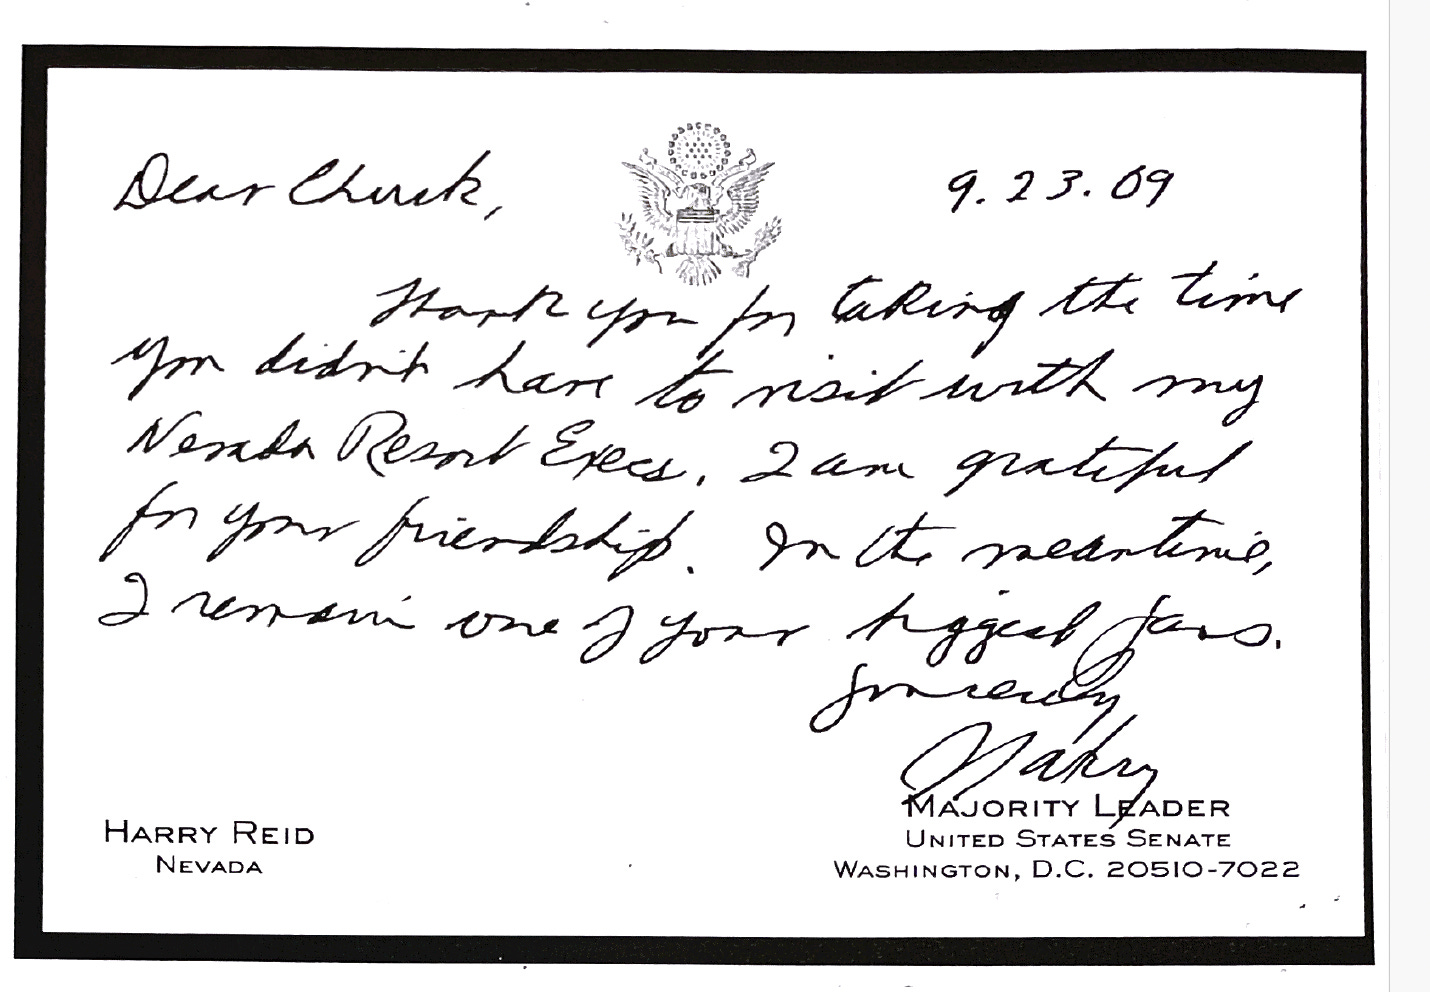 Dear Chuck,
9.23.09
Thank you for taking the time
you didn't have to visit with my
Nevada Resort Execs. I am grateful
for your friendship. In the meantime,
I remain one of your biggest fans.
Sincerely
Harry
HARRY REID
NEVADA
MAJORITY LEADER
UNITED STATES SENATE
WASHINGTON, D.C. 20510-7022